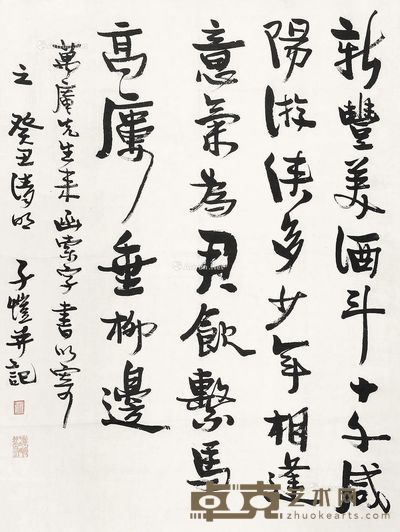 新豐美酒斗十千咸
陽游俠多少年相逢
意氣為君飲繫馬
高廔垂柳邊
萬先生来函索字書以寄
之 癸丑清明 子愷并記
卓克艺术网
www.zhuokearts.com